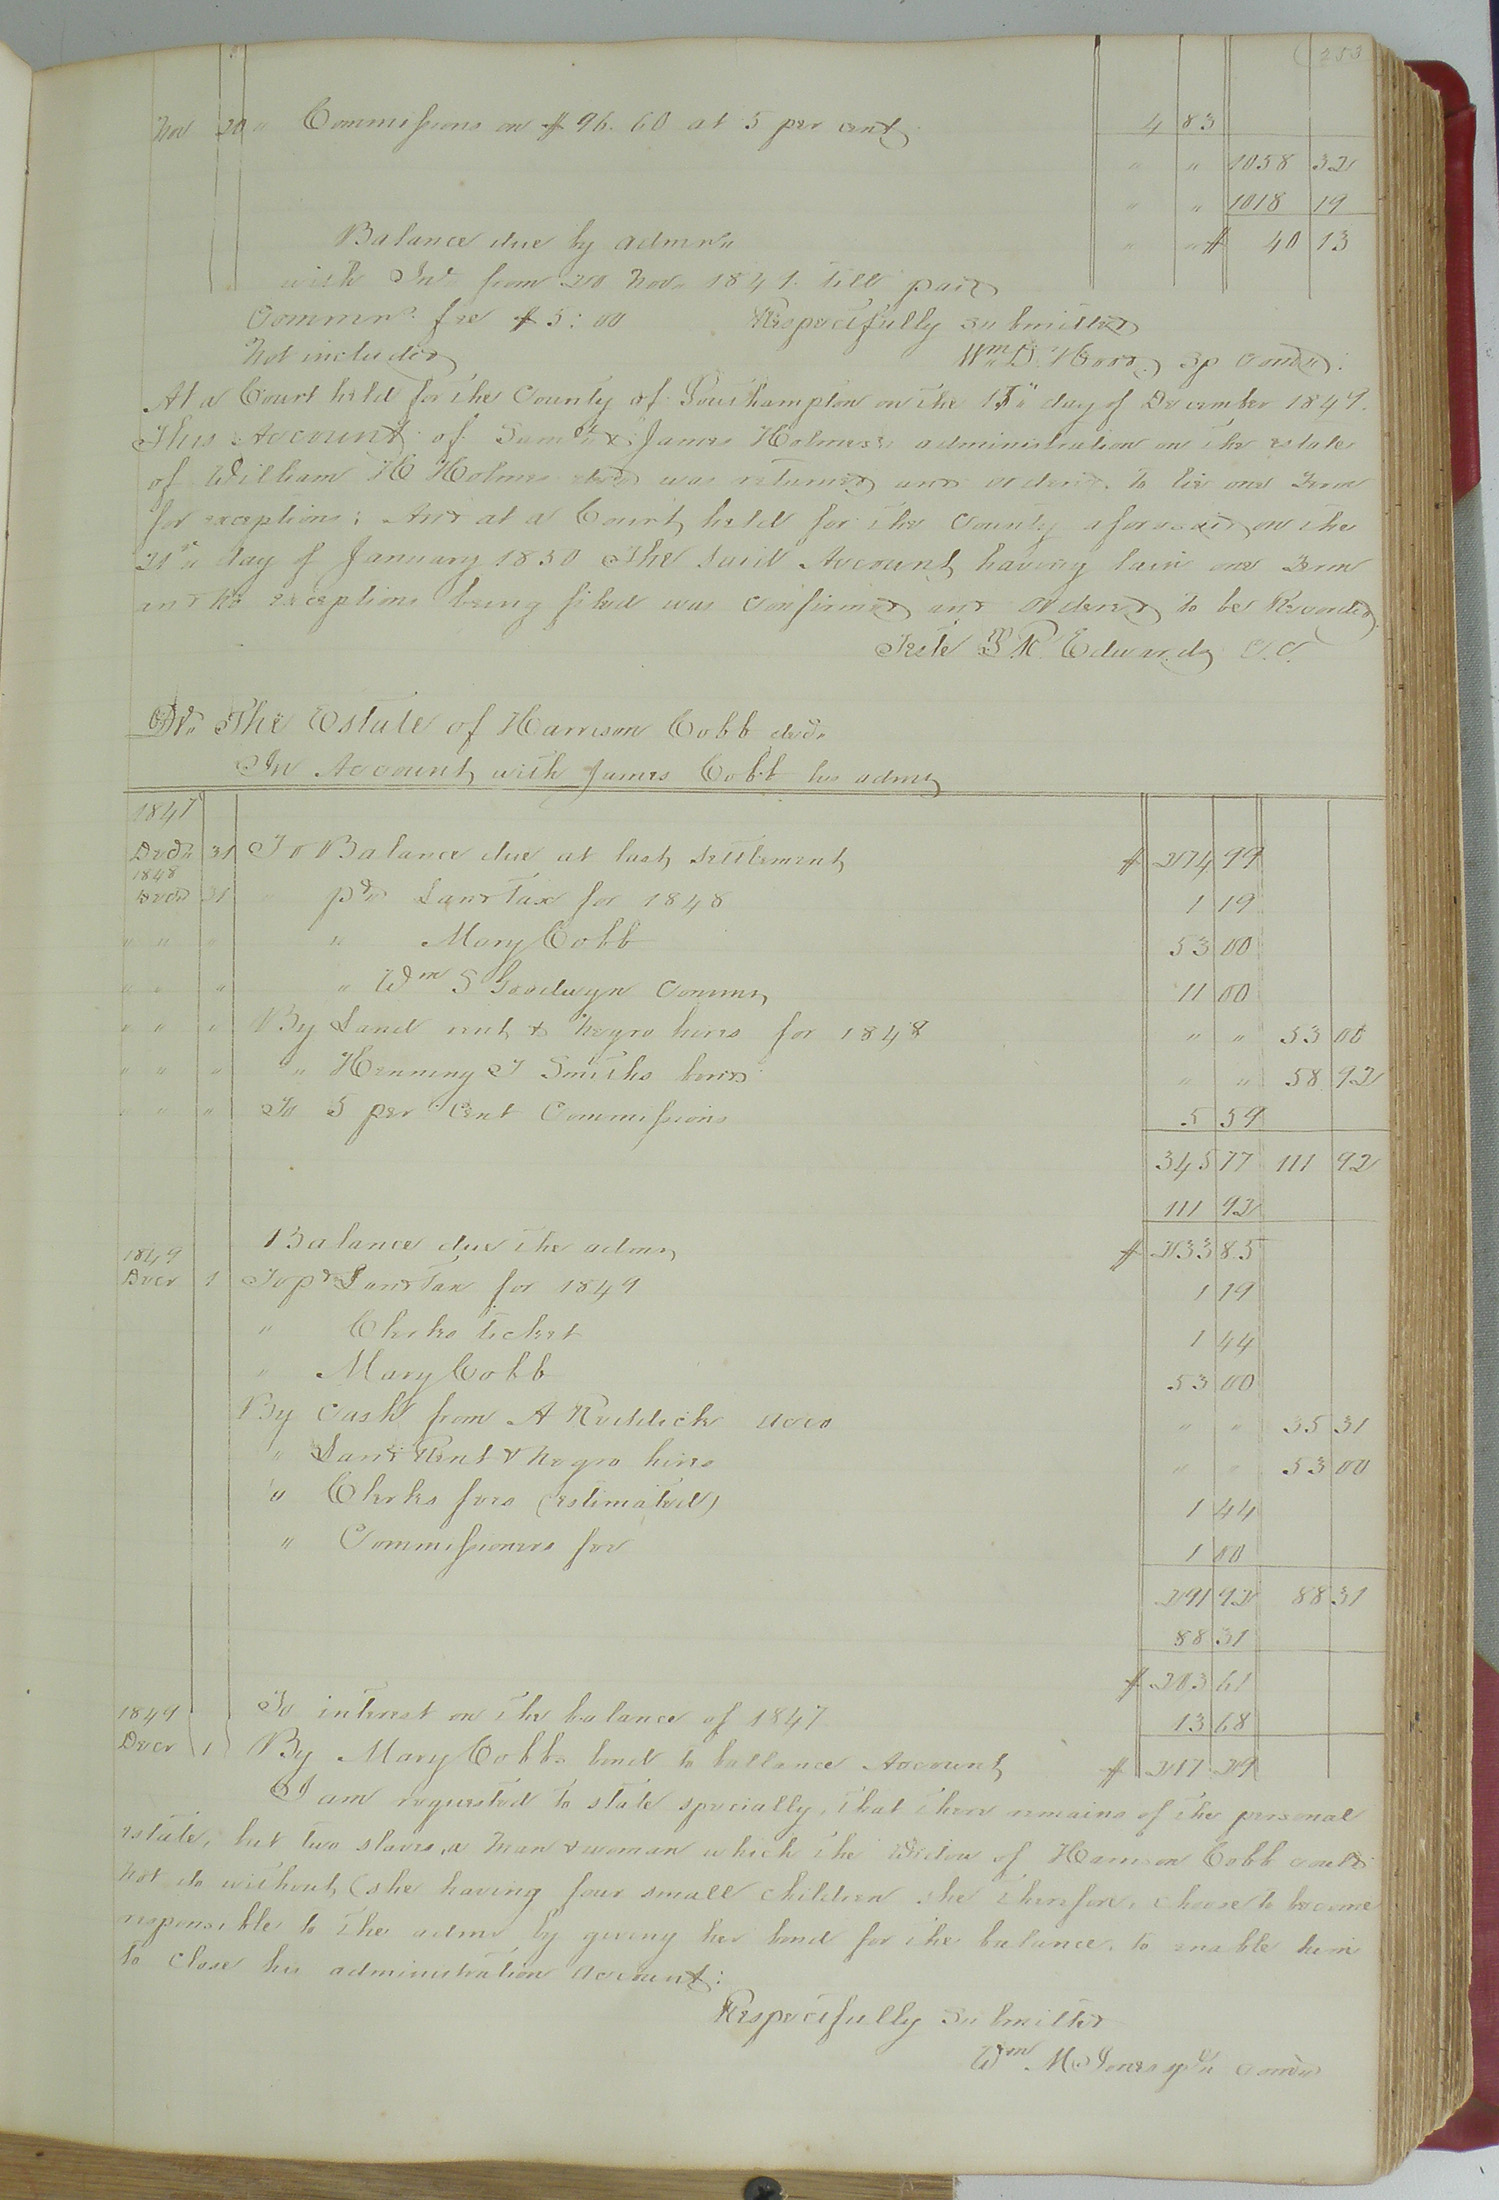 253
Nov 20 " Commissions on $96.60 at 5 per cent 4 83
" " 1058 32
" " 1018 19
Balance due by admr " " $ 40 13
with Int from 20 Nov. 1849 till paid
Commr. fee $5:00 Respectfully submitted
Not included Wm D. Hood sp comr:
At a Court held for the County of Southampton on the 15" day of December 1849.
This Account of Saml & James Holmes's administration on the estate
of William H Holmes decd was returned and ordered to lie one Term
for exceptions; And at a Court held for the County aforesaid on the
21st day of January 1850 The said Account having lain one Term
and no exceptions being filed was Confirmed and ordered to be Recorded
Teste L R Edwards C.C.
Dr. The Estate of Harrison Cobb decd.
In Account with James Cobb his admr
1847
Decr 31 To Balance due at last settlement $ 274 99
1848
Decr 31 " pd Land Tax for 1848 1 19
" " " " Mary Cobb 53 00
" " " " Wm S Goodwyn Commr 11 00
" " " By Land rent & Negro hires for 1848 " " 53 00
" " " " Henning T Smiths bond " " 58 92
" " " To 5 per Cent Commissions 5 59
345 77 111 92
111 92
Balance due the admr $ 233 85
1849
Decr 1 To pd Land Tax for 1849 1 19
" Clerks ticket 1 44
" Mary Cobb 53 00
By Cash from A Riddick " " 35 31
" Land Rent & Negro hires " " 53 00
" Clerks fees (estimated) 1 44
" Commissioners fee 1 00
291 92 88 31
88 31
$ 203 61
1849 To interest on the balance of 1847 13 68
Decr 1 By Mary Cobbs bond to ballance Account $ 217 29
I am requested to state specially, that there remains of the personal
estate, but two slaves, a man & woman which the Widow of Harrison Cobb could
not do without (she having four small children she therefore, choose to become
responsible to the admr by giving her bond for the balance, to enable him
to close his administration account:
Respectfully submitted
Wm. M. Jones spl comr